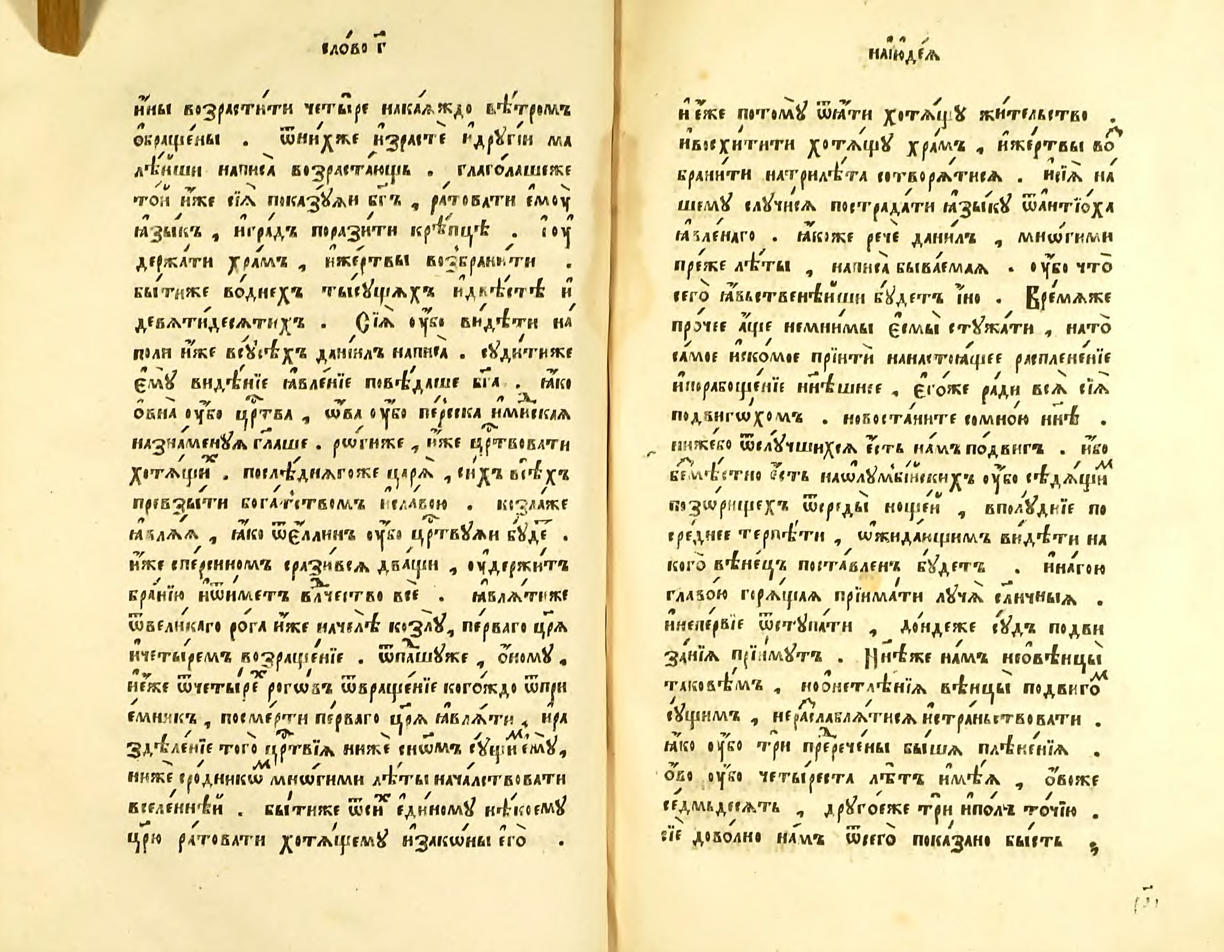 сло́во г҃
и҆́ны возрасти́ти четы́ре нака́ѧждо вѣ́тромъ
ѡ҆браще́ны . ѿни́хже и҆зрастѐ и҆дрꙋгі́и ма
лѣ́йши написа̀ возраста́ющь . глаго́лашеже
то́й и҆́же сїѧ̑ показꙋ́ѧи бг҃ъ , ратова́ти є҆моꙋ̀
ꙗ҆зы́къ , и҆гра́дъ порази́ти крѣ́пцѣ . і҆оу҆
держа́ти хра́мъ , и҆же́ртвы возбрани́ти .
бы́тиже во́днехъ ты́сꙋщѧхъ и҆двѣ́стѣ и҆
девѧти́десѧтихъ . Сїѧ̑ оу҆́бо ви́дѣти на̀
поли и҆́же всꙋ́сѣхъ данїи́лъ написа̀ . сꙋди́тиже
є҆мꙋ̀ видѣ́нїе ꙗ҆вле́нїе повѣ́даше бг҃а . ꙗ҆́ко
ѻ҆вна̀ оу҆́бо црⷭ҇тва , ѡ҆́ва оу҆́бо пе́рсска и҆ми́дⷭ҇скаѧ
назна́менꙋѧ гл҃аше . рѡги́же , и҆́же црⷭ҇твовати
хотѧ́щиⷯ . послѣ́днѧгоже царѧ̀ , си́хъ всѣ́хъ
превзы́ти бога́тствомъ и҆сла́вою . козла́же
ꙗ҆влѧ́ѧ , ꙗ҆́ко ѿе́ллинъ оу҆́бо црⷭ҇твꙋѧи бꙋ́деⷮ .
и҆́же спе́рсиномъ срази́всѧ два́щи , оу҆держи́тъ
бра́нїю и҆ѿи́метъ влⷣчество всѐ . ꙗ҆влѧ́тиже
ѿвели́каго ро́га и҆́же начелѣ̀ козлꙋ̀, пе́рваго цр҃ѧ̀
и҆четы́ремъ возраще́нїе . ѿпа́дшꙋже , ѻ҆́номꙋ ,
и҆е҆́же ѿчеты́реⷯ рогѡ́въ ѿвраще́нїе кого́ждо ѿпри
є҆́мникъ , посме́рти пе́рваго цр҃ѧ̀ ꙗ҆влѧ́ти , и҆ра
здѣле́нїе того̀ црⷭ҇твїѧ нижѐ сн҃ѡмъ сꙋ́щиⷨ є҆мꙋ̀,
нижѐ сро́дникѡⷨ мнѡ́гими лѣ́ты нача́лствовати
вселе́ннѣй . бы́тиже ѿси́ⷯ є҆ди́номꙋ нѣ́коемꙋ
цр҃ю̀ ра́товати хотѧ́щемꙋ и҆зако́ны є҆гѡ̀ .
наі҆ю҆де́ѧ
и҆е҆́же потомꙋ̀ ѿѧ́ти хотѧ́щꙋ жи́тельство .
и҆восхи́тити хотѧ́щꙋ хра́мъ , и҆же́ртвы воⷥ
брани́ти натри́лѣта сотворѧ́тисѧ . и҆сїѧ̑ на́
шемꙋ слꙋчи́сѧ пострада́ти ꙗ҆зы́кꙋ ѿантїо́ха
ꙗ҆вле́наго . ꙗ҆́коже речѐ дані́лъ , мнѡ́гими
пре́же лѣ́ты , написа̀ быва́емаѧ . оу҆́бо что̀
сегѡ̀ ꙗ҆́вьственѣйши бꙋ́детъ і҆́но . Вре́мѧже
про́чее а҆́ще немни́мы є҆смы̀ стꙋжа́ти , на́то
са́мое и҆ско́мое прїитѝ нанастоѧ́щее расплене́нїе
и҆порабоще́нїе нн҃ѣшнее , є҆го́же ра́ди всѧ̑ сїѧ̑
подвиго́хомъ . новоста́ните сомно́ю нн҃ѣ .
ни́жебо ѿслꙋчши́хсѧ є҆́сть на́мъ по́двигъ . и҆́бо
беⷥмѣ́стно є҆́сть наѡ҆лꙋмбі́йскихъ оу҆́бо сѣдѧ́щиⷨ
позо́рищехъ ѿсреды̀ но́щей , вполꙋ́днїе по
сре́днее терпѣ́ти , ѡ҆жида́ющимъ ви́дѣти на
кого̀ вѣне́цъ поста́вленъ бꙋ́детъ . и҆наго́ю
главо́ю горѧ́щаѧ прїима́ти лꙋчѧ̀ сл҃нчныѧ .
и҆непе́рвїе ѿстꙋпа́ти , до́ндеже сꙋ́дъ подви
за́нїѧ прїи́мꙋтъ . Нн҃ѣже на́мъ неовѣнцы̀
таковѣ́мъ , нооⷩ҇етлѣ́нїѧ вѣнцы̀ подви́гоⷨ
сꙋ́щимъ , нераслаблѧ́тисѧ и҆стра́ньствовати .
ꙗ҆́ко оу҆́бо трѝ прⷣерече́ны бы́шѧ плѣне́нїѧ .
ѻ҆́во оу҆́бо четы́реста лѣ́тъ и҆мѣ́ѧ , ѻ҆́воже
се́дмьдесѧтъ , дрꙋго́еже трѝ и҆по́лъ то́чїю .
сїѐ дово́лно на́мъ ѿсегѡ̀ пока́зано бы́сть ;